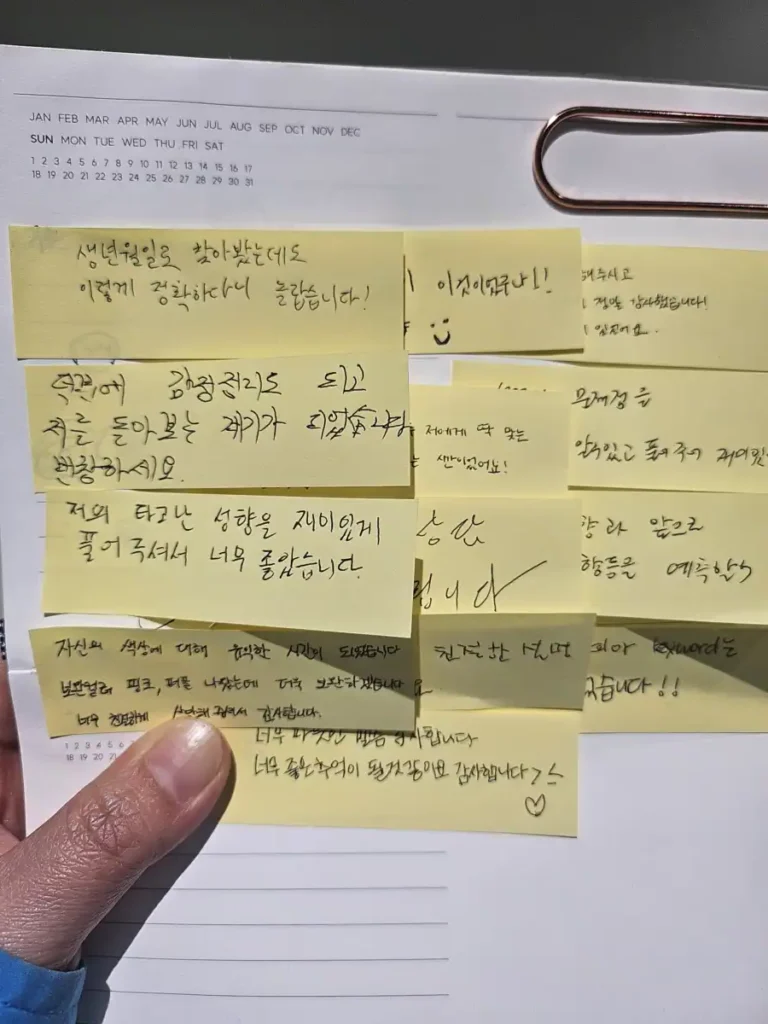 JAN FEB MAR APR MAY JUN JUL AUG SEP OCT NOV DEC
SUN MON TUE WED THU FRI SAT
1 2 3 4 5 6 7 8 9 10 11 12 13 14 15 16 17
18 19 20 21 22 23 24 25 26 27 28 29 30 31
생년월일로 찾아봤는데도
이렇게 정확하다니 놀랍습니다!
이것이었구나!
해주시고
정말 감사했습니다!
덕분에 감정정리도 되고
저를 돌아보는 계기가 되었습니다
번창하세요.
저에게 딱 맞는
시간이었어요!
문제점을
알수있고 풀어 주어
저의 타고난 성향을 재미있게
풀어 주셔서 너무 좋았습니다.
상담
립니다
향과 앞으로
예측할수
자신의 색상에 대해 유익한 시간이 되었습니다
보완컬러 핑크, 퍼플 나왔는데 더욱 보완하겠습니다
너무 친절하게 감사합니다.
친절한 설명
요
keyword는
있습니다!!
너무 따뜻한 말씀 감사합니다
너무 좋은추억이 될것같아요 감사합니다>
1 2 3 4 5 6
18 19 20 21